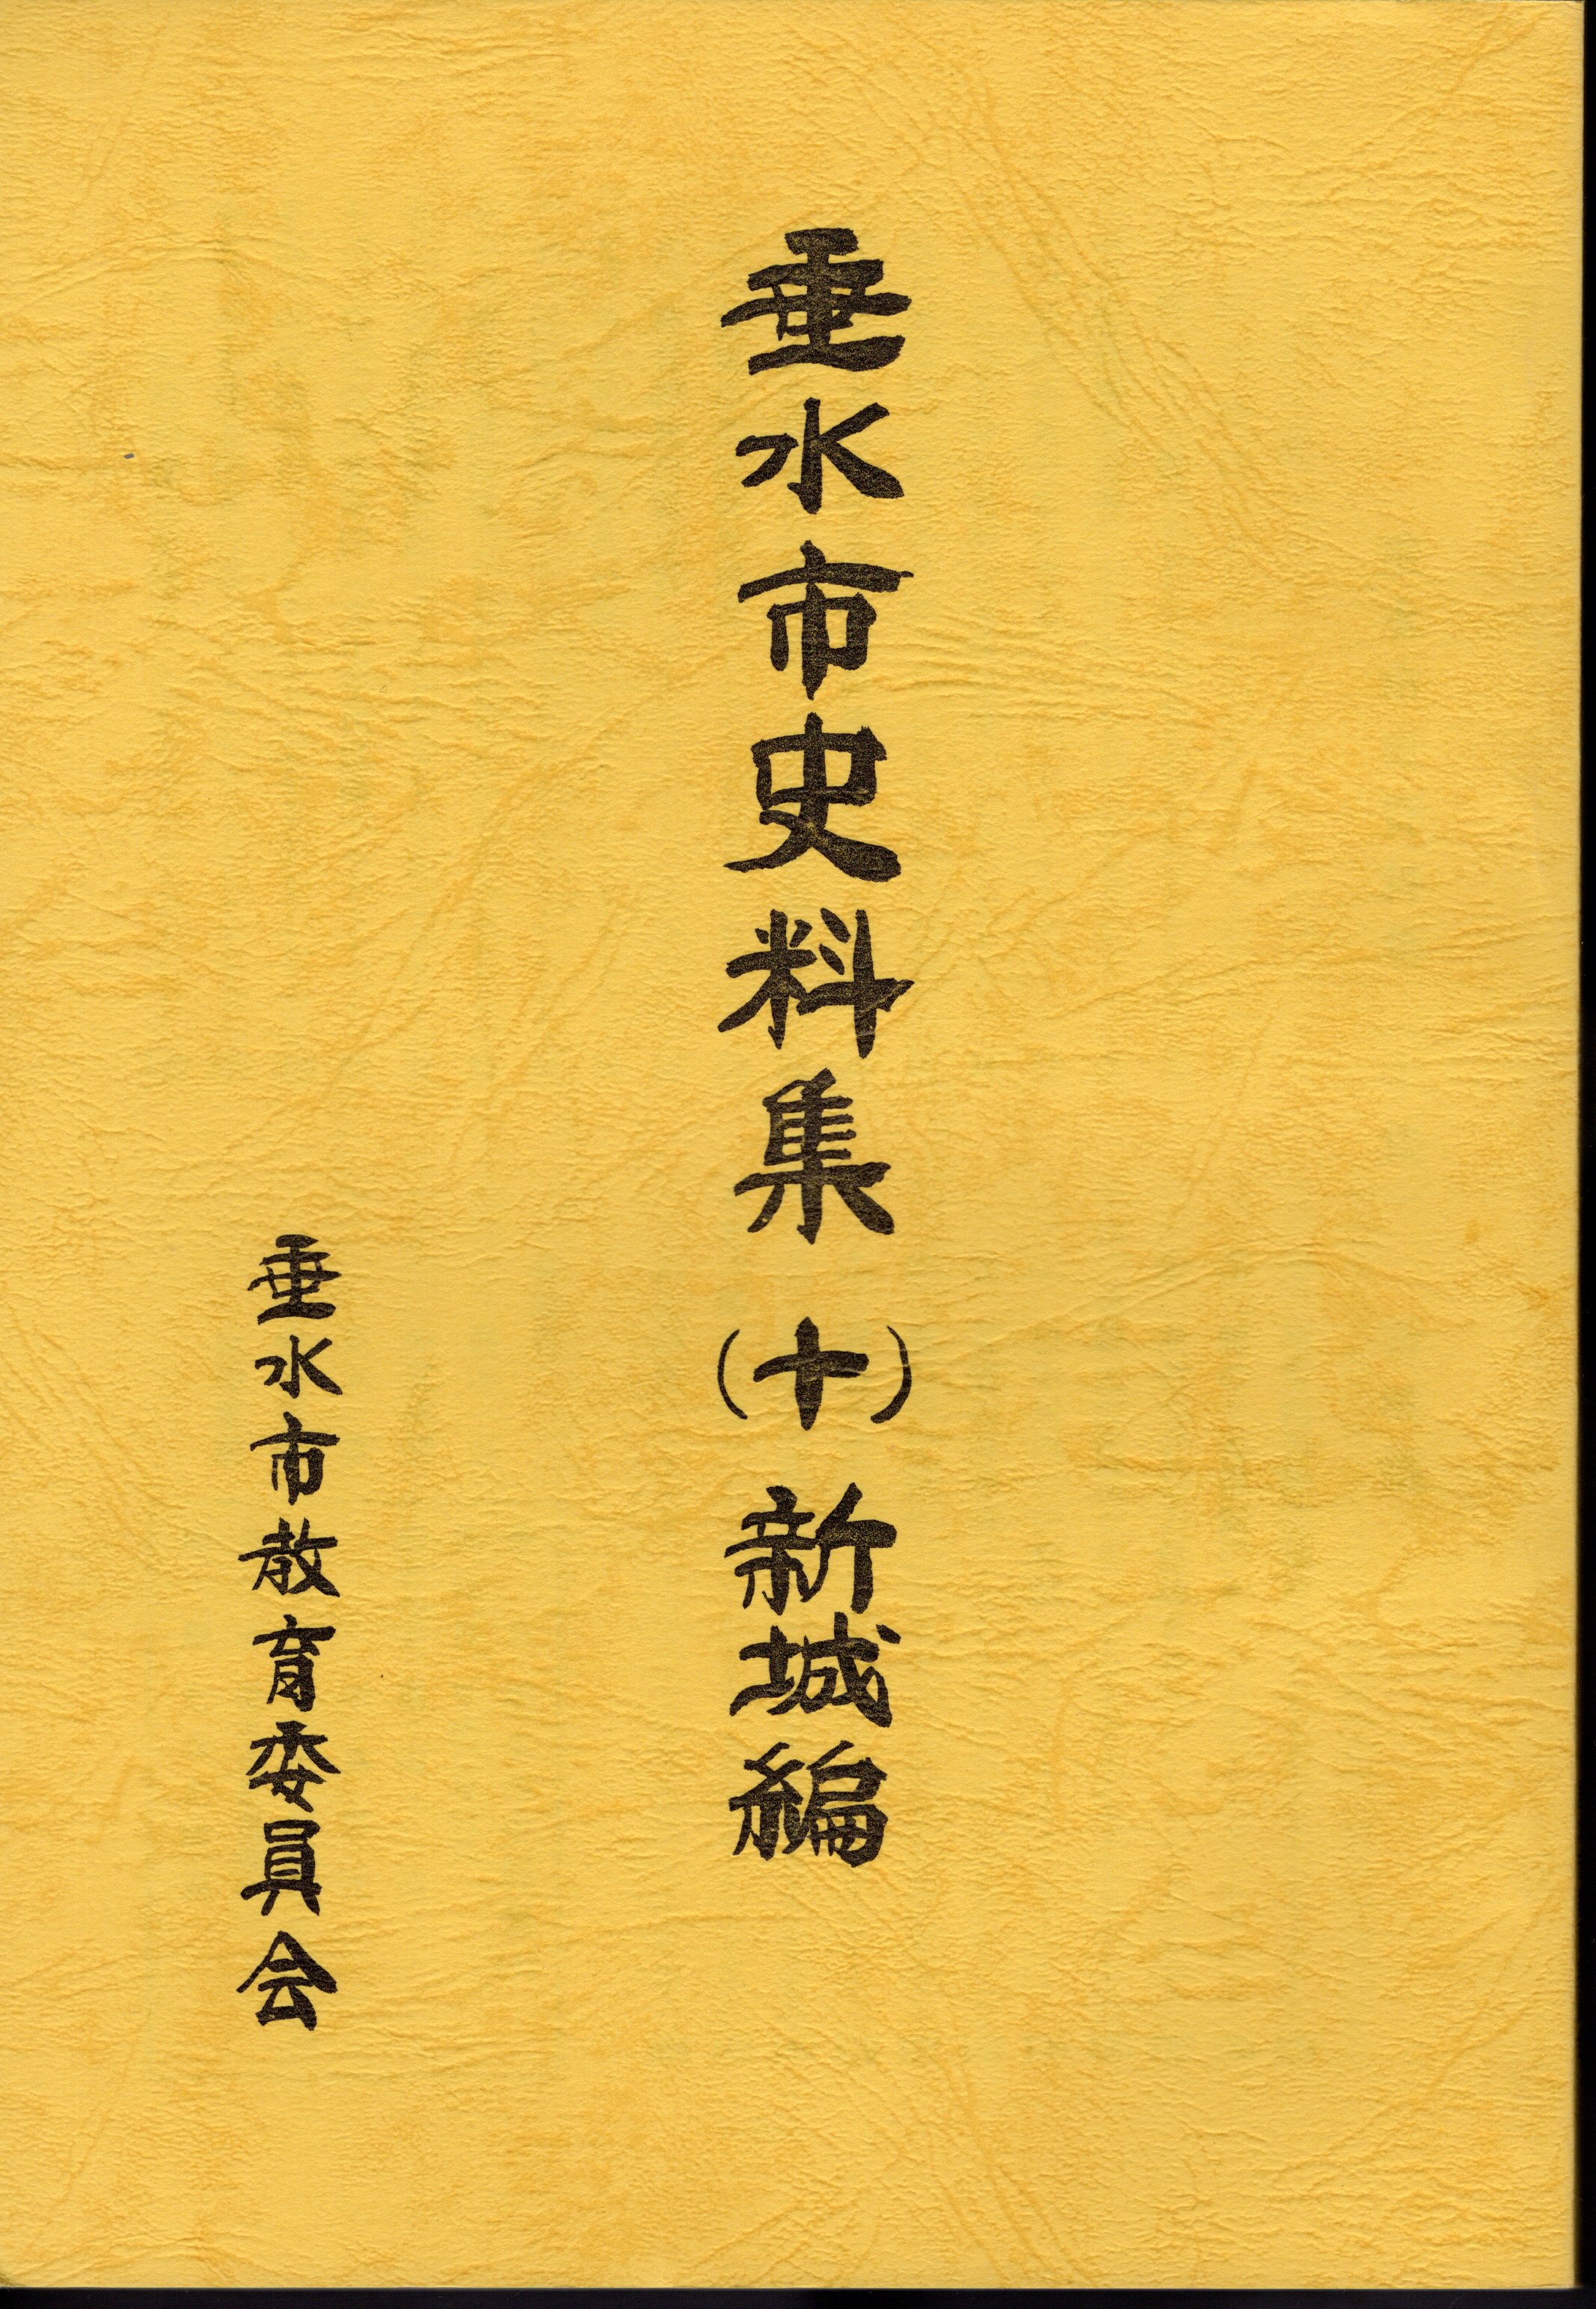 垂水市史料集(十)新城編
垂水市教育委員会